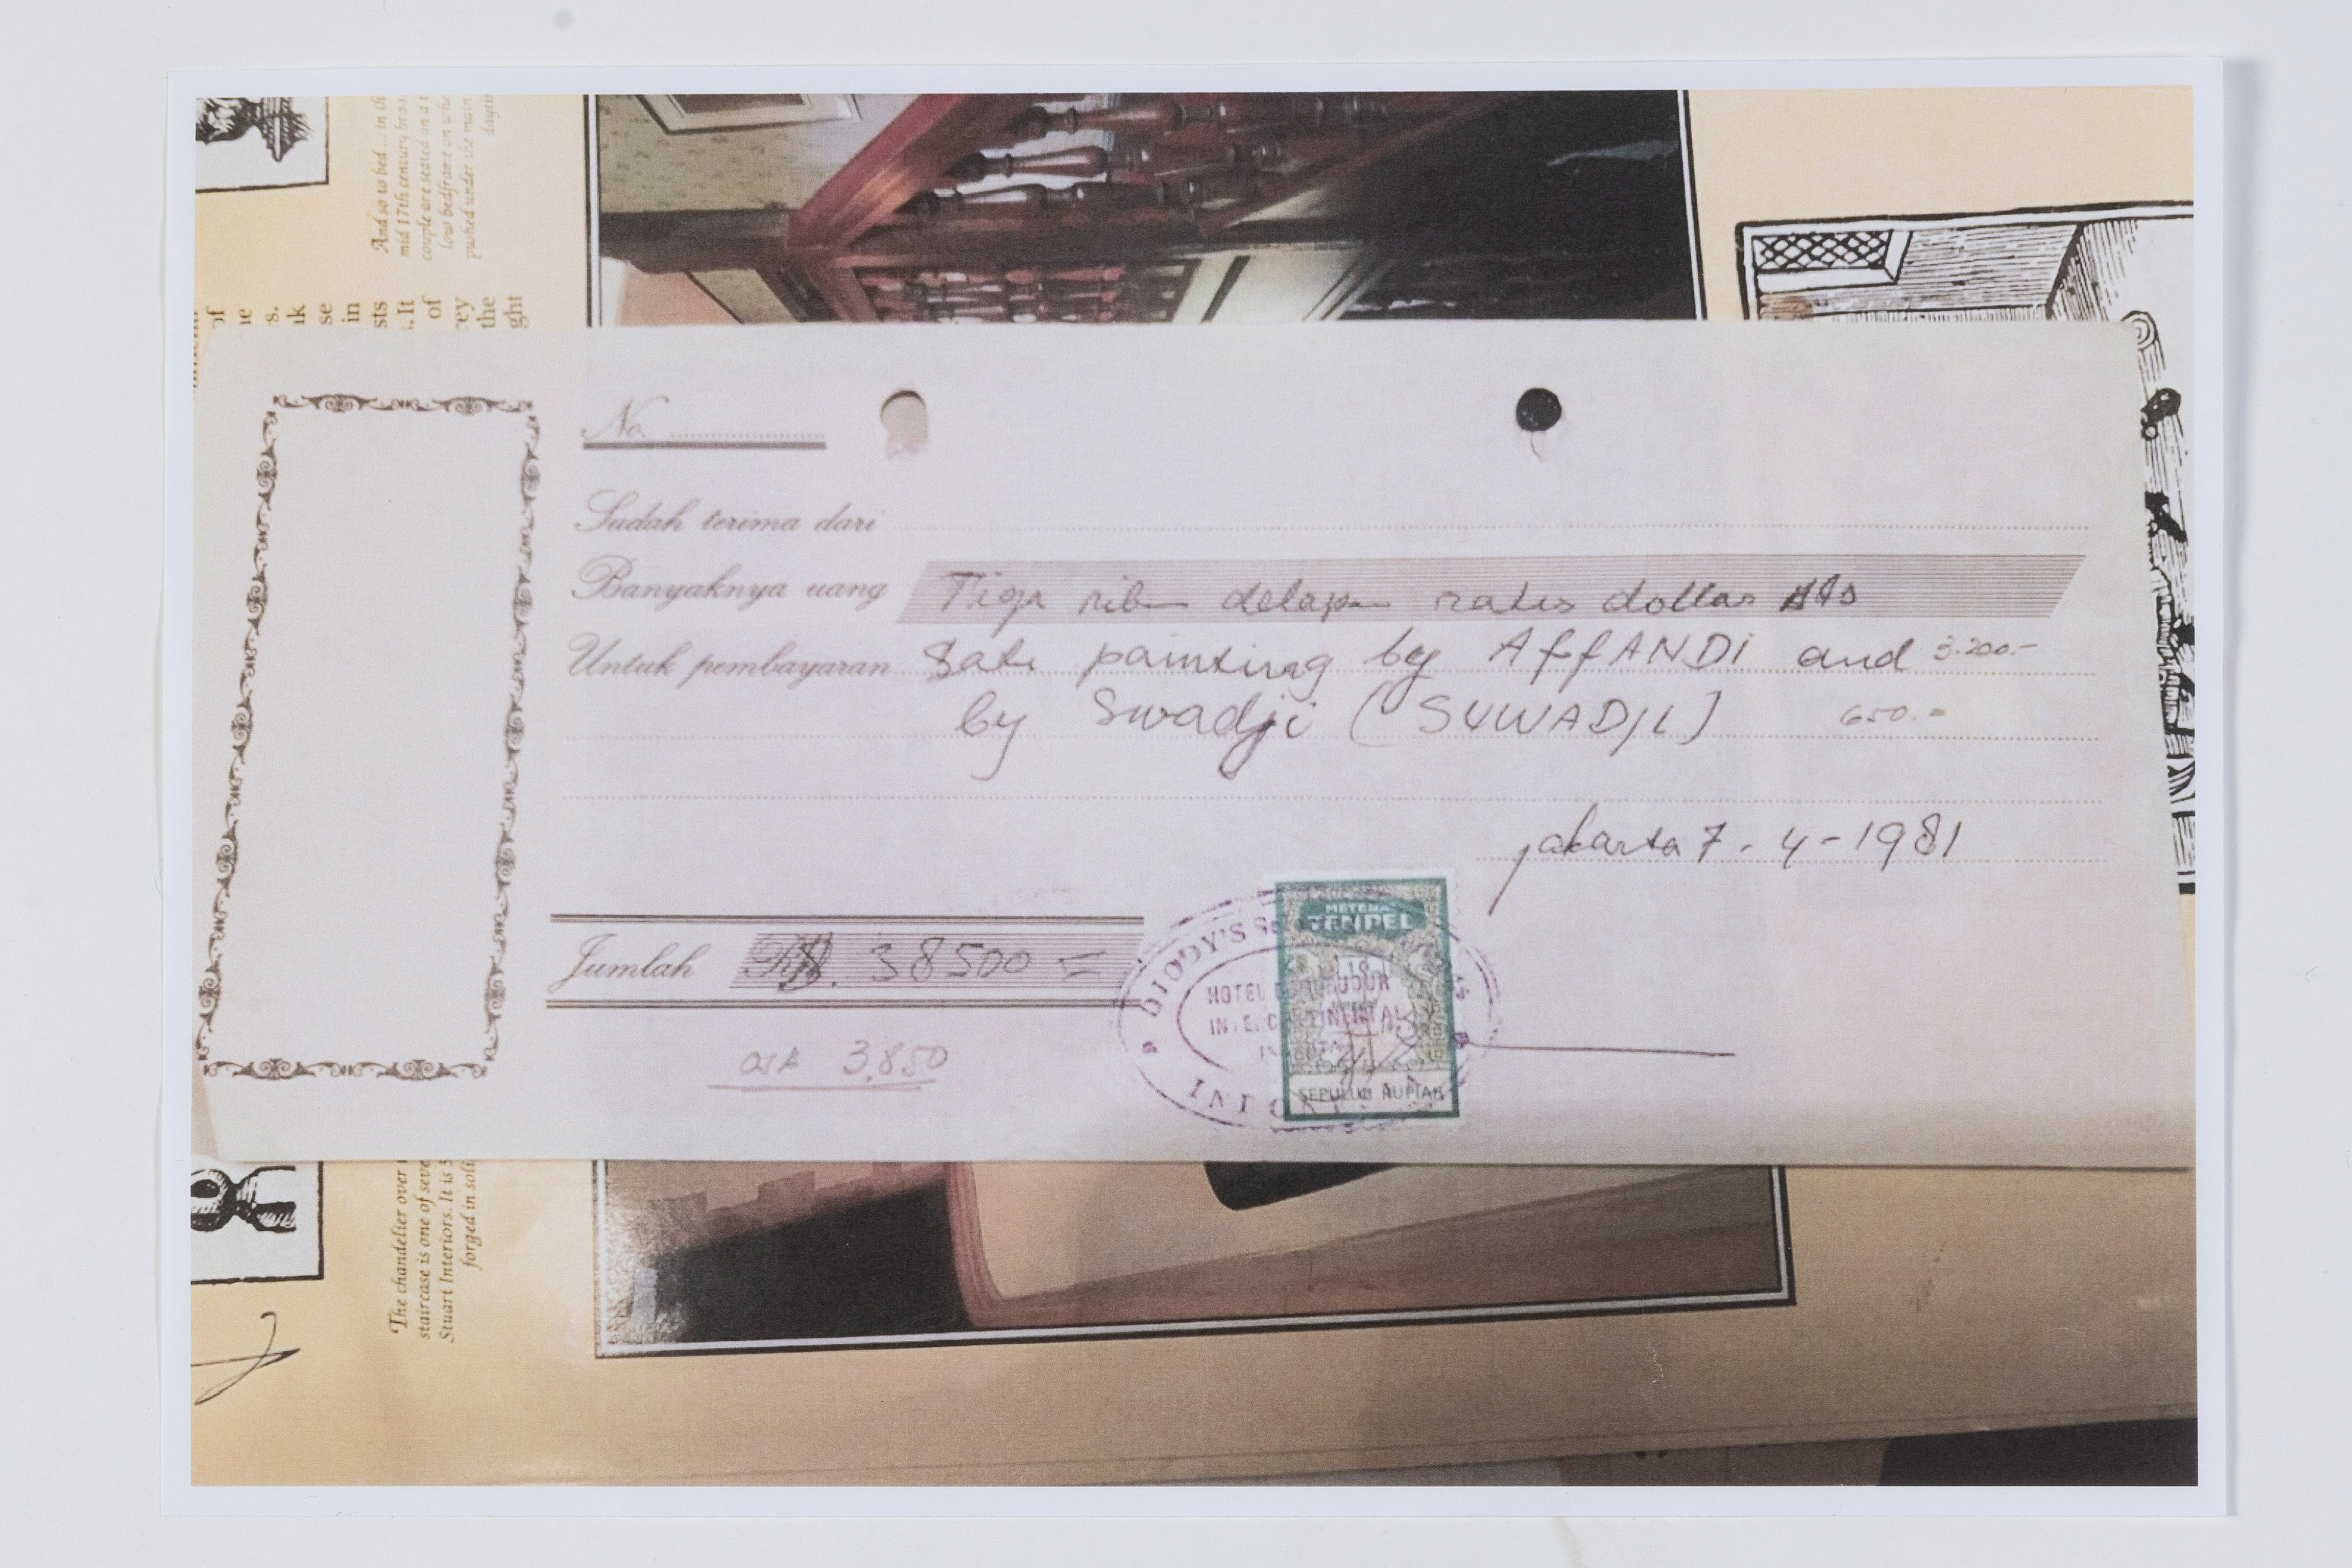 And so to bed ... in th
mid 17th century
couple are seated on a
low bedframe on whe
pushed under the main
dayti
of
he
s.
nk
se
in
sts
. It
of
rey
the
ght
No.
Sudah terima dari
Banyaknya uang Tiga ribu delapan ratus dollar
Untuk pembayaran Satu painting by AffANDI and 3.200.-
by Swadji (SUWADJI) 650.=
Jakarta 7 - 4 - 1981
Jumlah $. 38500 =
3,850
DIODY'S
HOTEL BOROBUDUR
INTERCONTINENTAL
METERAI
TEMPEL
10
SEPULUH RUPIAH
The chandelier over
staircase is one of seve
Stuart Interiors. It is 5
forged in soli